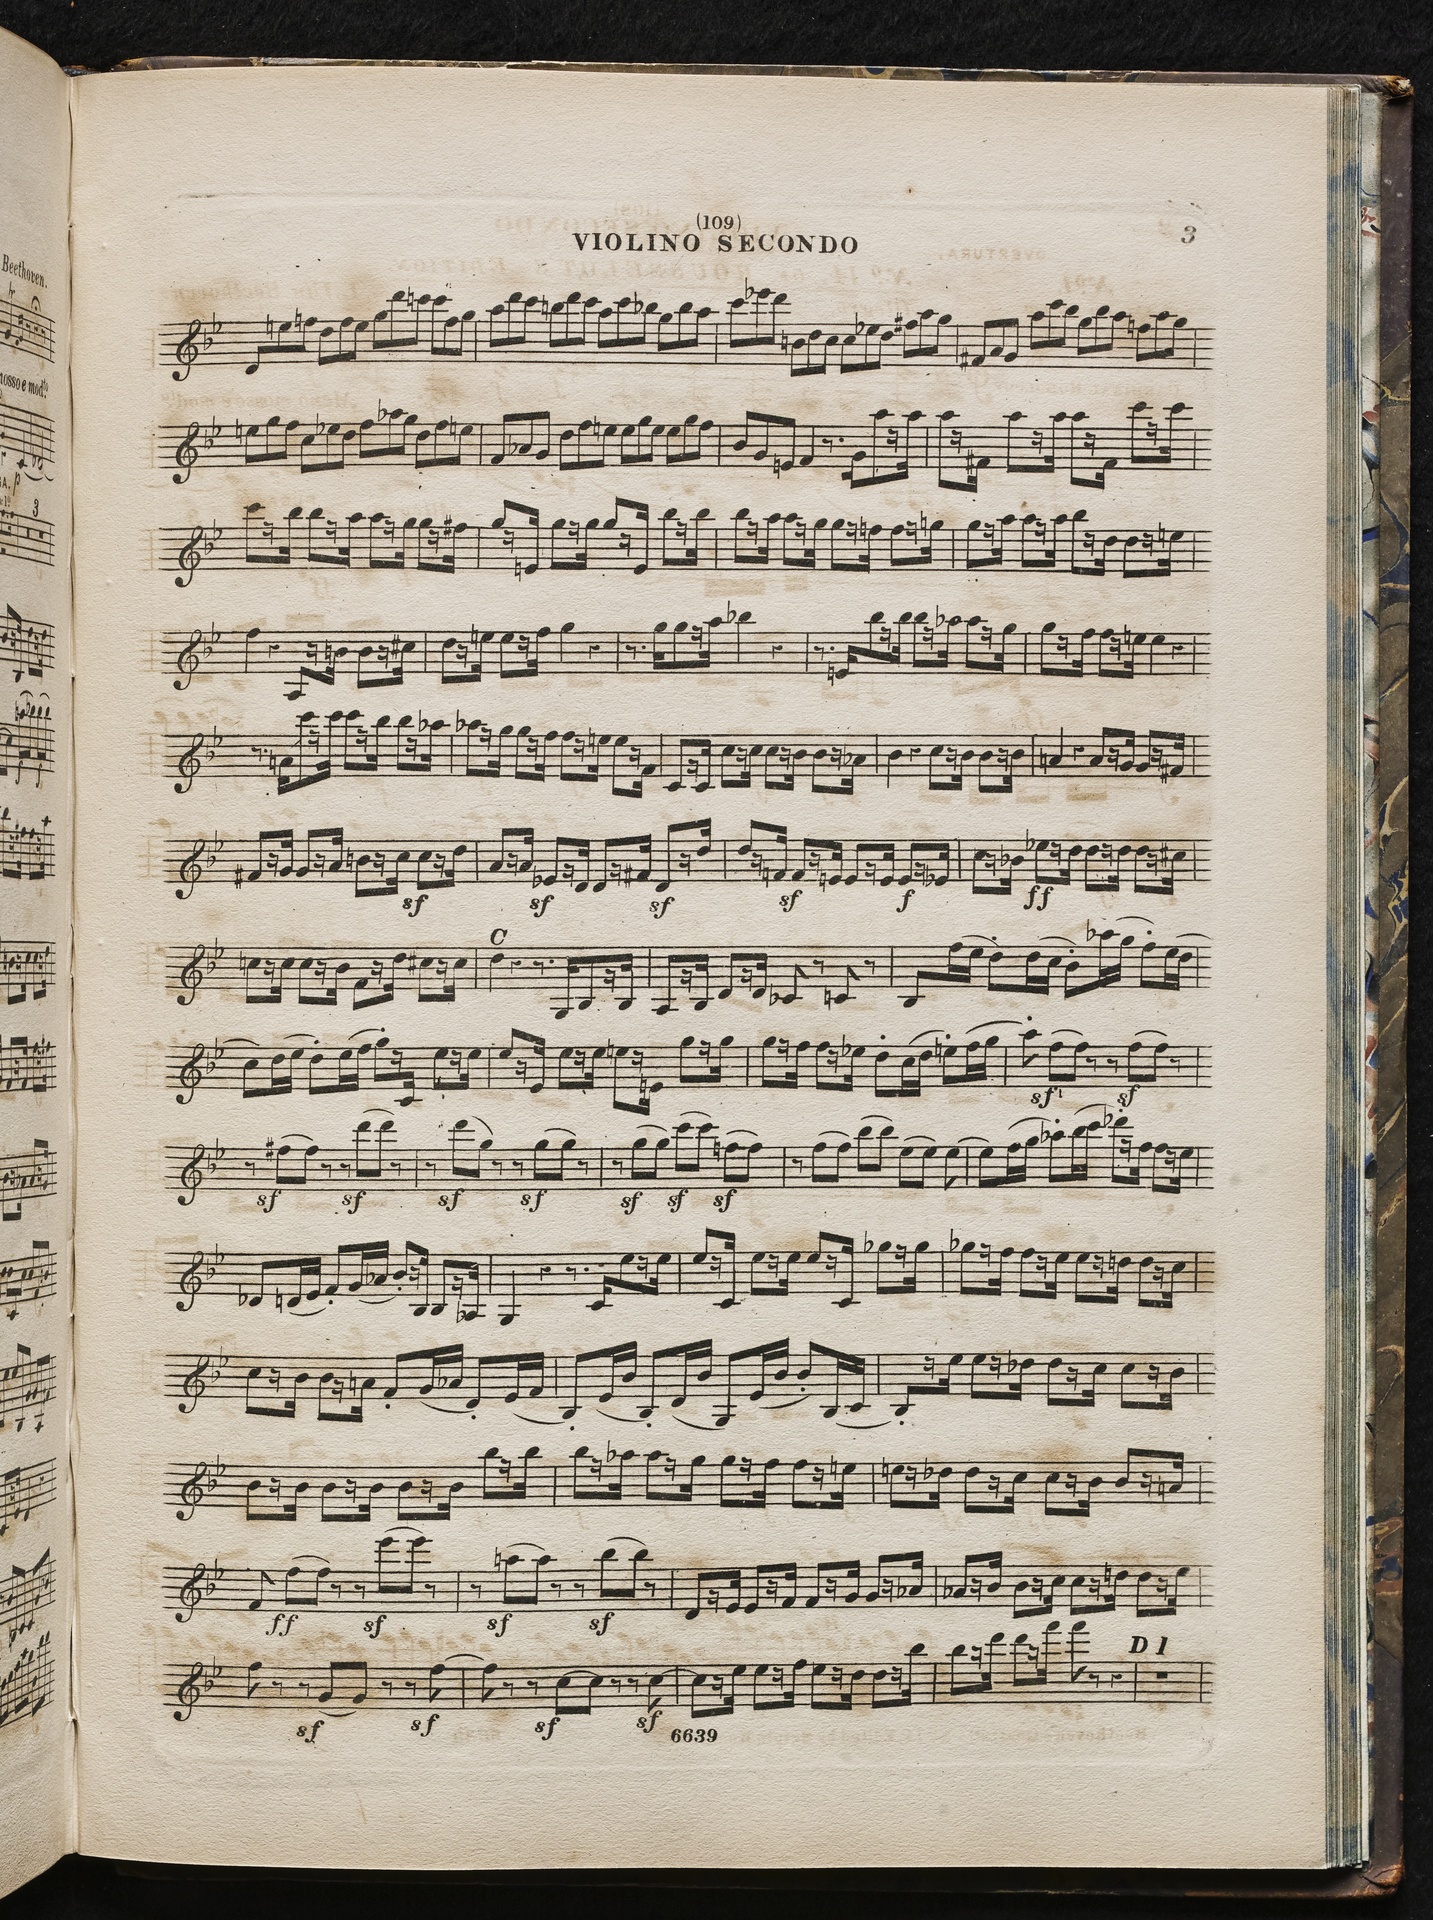 (109)
VIOLINO SECONDO
3
Beethoven.
tr
nosso e mod.to
p
3
sf sf sf sf f ff
C
sf sf
sf sf sf sf sf sf sf
ff sf sf sf
D 1
sf sf sf sf
6639